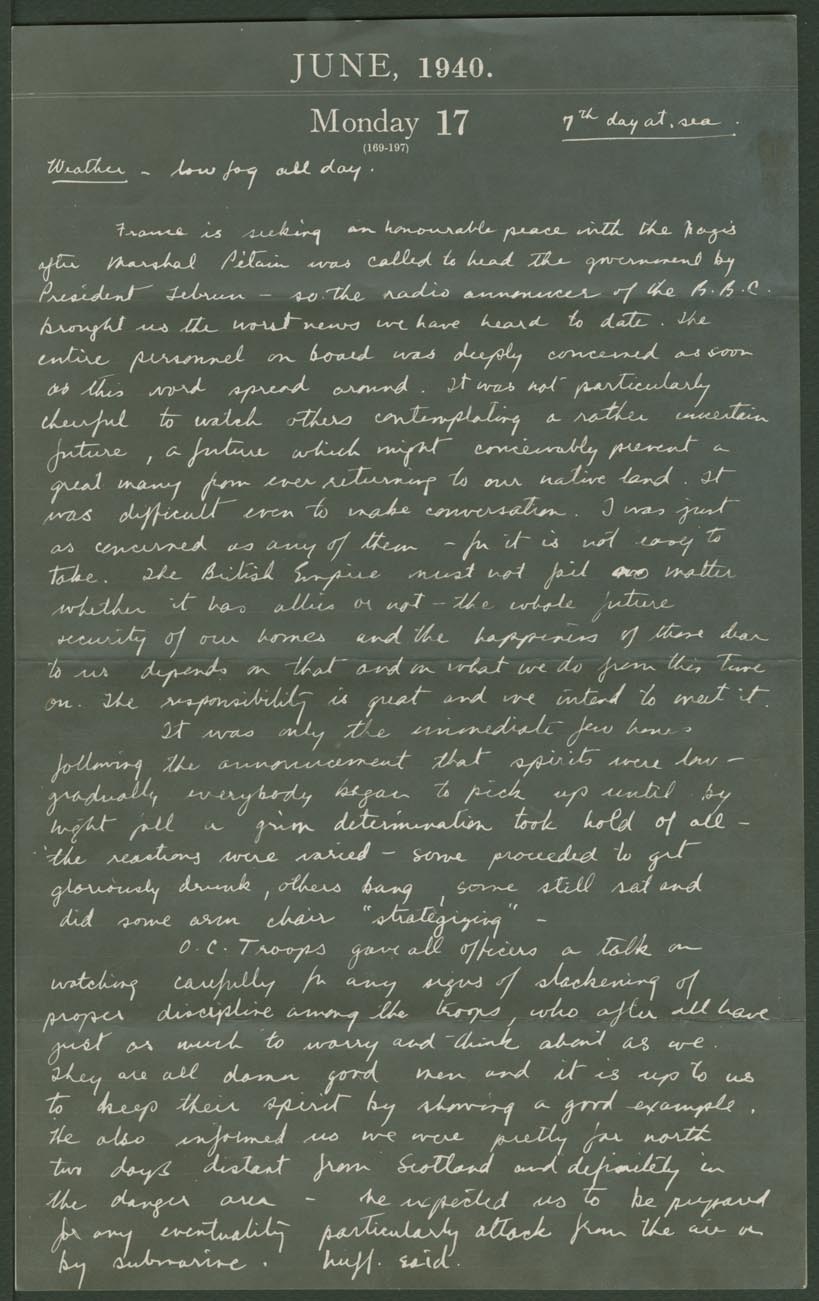 JUNE, 1940.
Monday 17
7th day at sea.
(169-197)
Weather - low fog all day.
France is seeking an honourable peace with the Nazis
after Marshal Pétain was called to head the government by
President Lebrun - so the radio announcer of the B.B.C.
brought us the worst news we have heard to date. The
entire personnel on board was deeply concerned as soon
as this word spread around. It was not particularly
cheerful to watch others contemplating a rather uncertain
future, a future which might conceivably prevent a
great many from ever returning to our native land. It
was difficult even to make conversation. I was just
as concerned as any of them - for it is not easy to
take. The British Empire must not fail no matter
whether it has allies or not - the whole future
security of our homes and the happiness of those dear
to us depends on that and on what we do from this time
on. The responsibility is great and we intend to meet it.
It was only the immediate few hours
following the announcement that spirits were low -
gradually everybody began to pick up until by
night fall a grim determination took hold of all -
the reactions were varied - some proceeded to get
gloriously drunk, others sang, some still sat and
did some arm chair "strategizing" -
O.C. Troops gave all officers a talk on
watching carefully for any signs of slackening of
proper discipline among the troops, who after all have
just as much to worry and think about as we.
They are all damn good men and it is up to us
to keep their spirit by showing a good example.
He also informed us we were pretty far north
two days distant from Scotland and definitely in
the danger area - he expected us to be prepared
for any eventuality particularly attack from the air or
by submarine. Nuff. said.